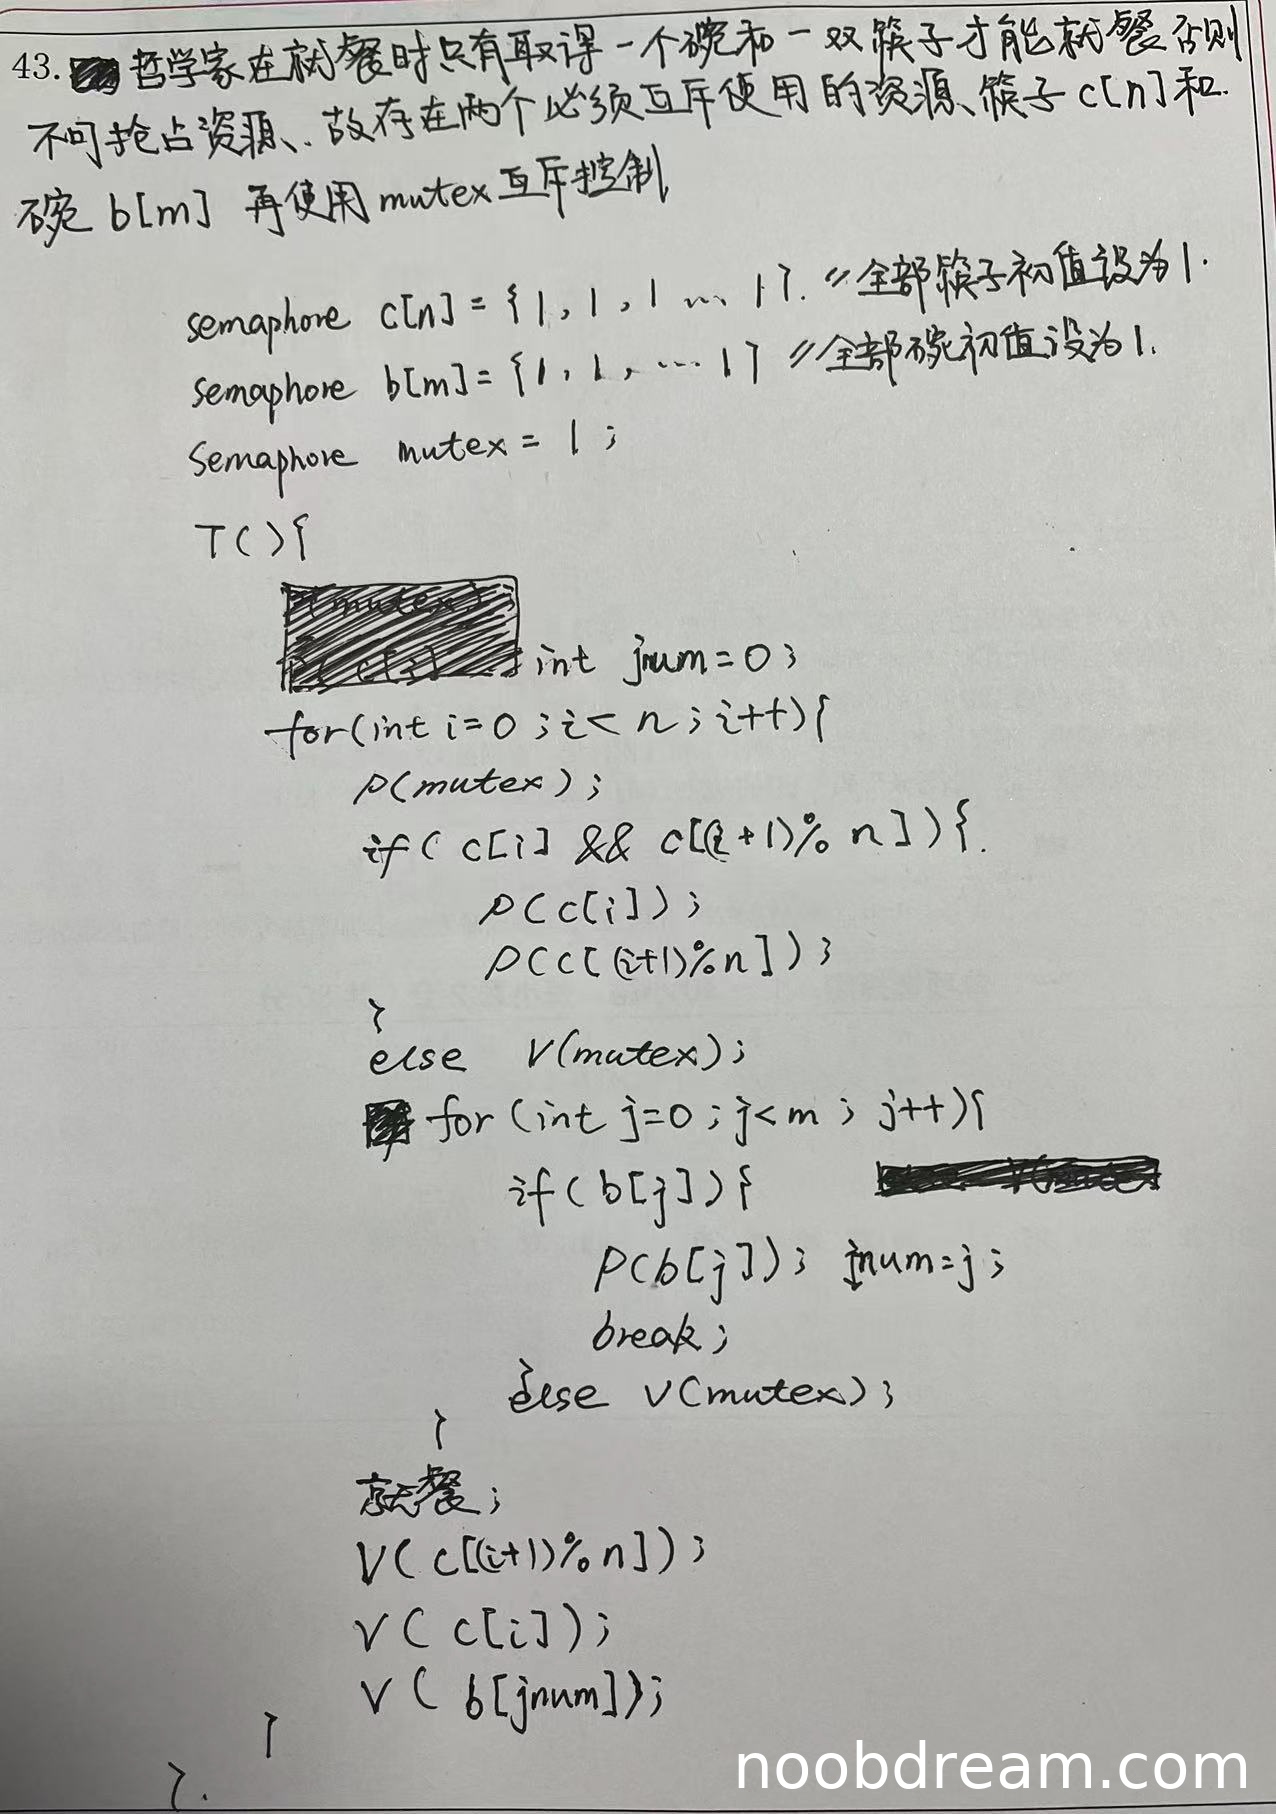 43. 哲学家在就餐时只有取得一个碗和一双筷子才能就餐否则
不可抢占资源、故存在两个必须互斥使用的资源、筷子c[n]和
碗 b[m] 再使用mutex互斥控制
semaphore c[n] = {1, 1, 1 ... 1}. //全部筷子初值设为1.
semaphore b[m]= {1, 1, ... 1} //全部碗初值设为1.
Semaphore mutex = 1 ;
T(){
int jnum=0;
for(int i=0 ;i< n ;i++){
P(mutex);
if( c[i] && c[(i+1)% n]){.
P(c[i]);
P(c[(i+1)%n]);
}
else V(mutex);
for (int j=0 ;j<m ; j++){
if(b[j]){
P(b[j]); jnum=j;
break;
}
else V(mutex);
}
就餐;
V( c[(i+1)%n]);
V( c[i]);
V( b[jnum]);
}
}.
noobdream.com